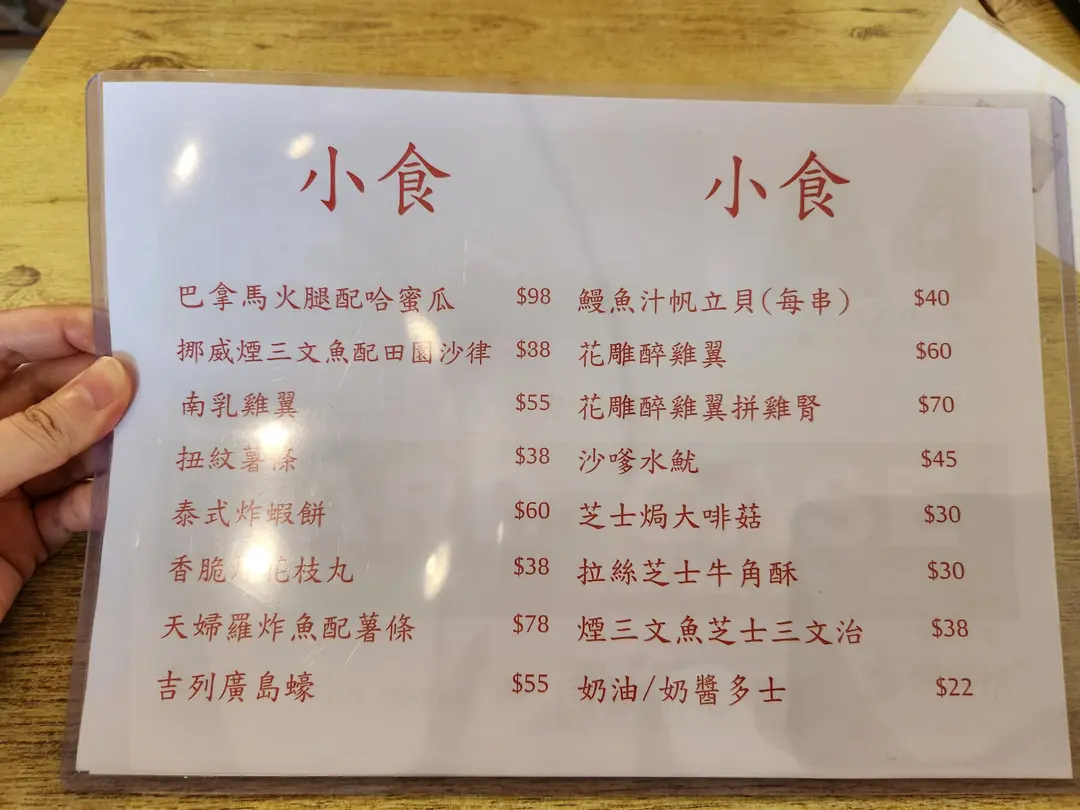 小食
巴拿馬火腿配哈蜜瓜 $98
挪威煙三文魚配田園沙律 $88
南乳雞翼 $55
扭紋薯條 $38
泰式炸蝦餅 $60
香脆 花枝丸 $38
天婦羅炸魚配薯條 $78
吉列廣島蠔 $55
小食
鰻魚汁帆立貝(每串) $40
花雕醉雞翼 $60
花雕醉雞翼拼雞腎 $70
沙嗲水魷 $45
芝士焗大啡菇 $30
拉絲芝士牛角酥 $30
煙三文魚芝士三文治 $38
奶油/奶醬多士 $22